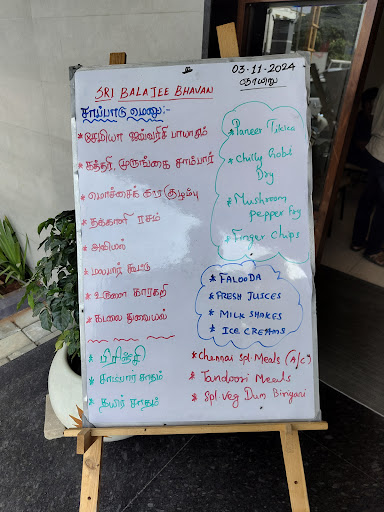 SRI BALAJEE BHAVAN
03-11-2024
ஞாயிறு
சாப்பாடு மெனு:-
* சேமியா ஜவ்வரிசி பாயாசம்
* கத்தரி, முருங்கை சாம்பார்
* மொச்சைக் கார குழம்பு
* தக்காளி ரசம்
* அவியல்
* மலபார் கூட்டு
* உருளை காரகறி
* கடலை துவையல்
* பிரிஞ்சி
* சாம்பார் சாதம்
* தயிர் சாதம்
* Paneer Tikka
* Chilly Gobi
Dry
* Mushroom
Pepper Fry
* Finger Chips
* FALOODA
* FRESH JUICES
* MILK SHAKES
* ICE CREAMS
* Chennai Spl Meals (A/C)
* Tandoori Meals
* Spl. Veg Dum Biriyani